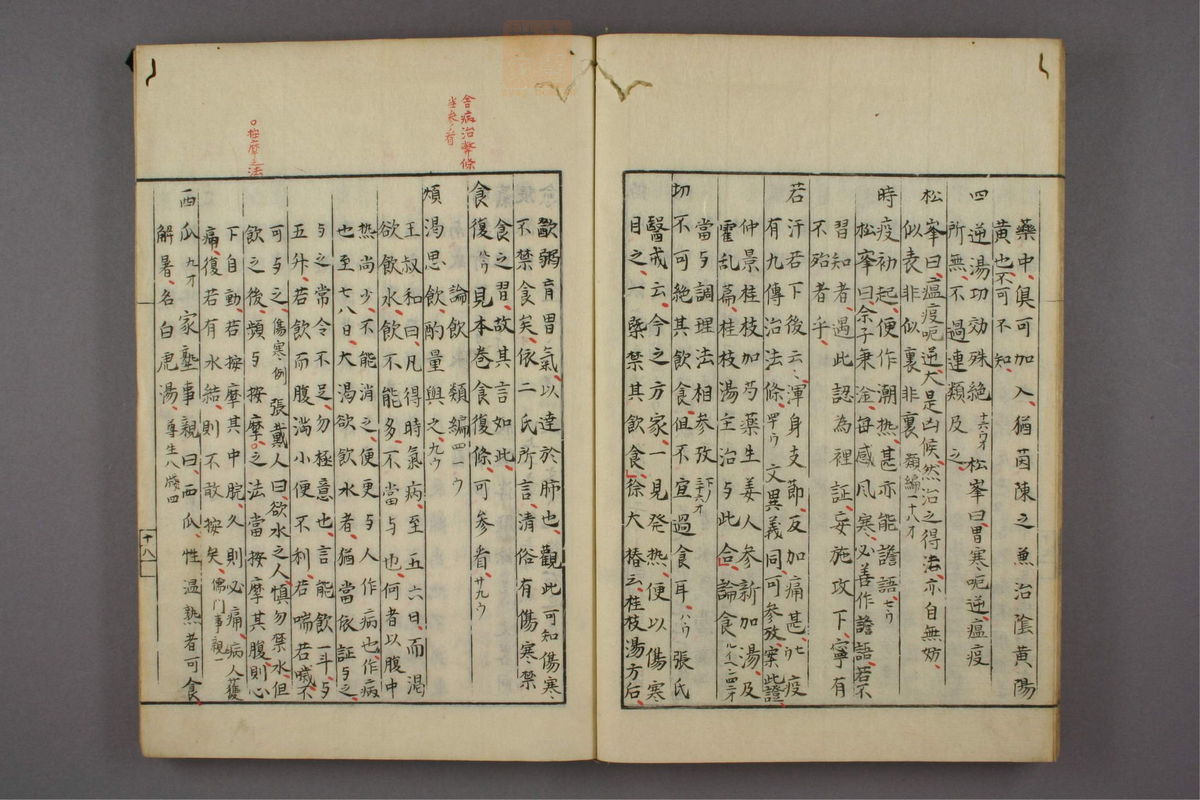 藥中、俱可加入、猶茵陳之兼治陰黃陽
黃也、不可不知、
四逆湯功効殊絶十六ウオ 松峯曰、胃寒呃逆、瘟疫
所無、不過連類及之、
松峯曰、瘟疫呃逆、大是凶候、然治之得法、亦自無妨、
似表非似裏非裏 類編一十八オ
時疫初起、便作潮熱、甚亦能譫語、七ウ
松峯曰、余子秉淦、每感風寒、必善作譫語、若不
習知者、遇此認為裡証、妄施攻下、寧有
不殆者乎、
若汗若下後云〻、渾身支節、反加痛甚、疫
有九傳治法條、罘ウ 文異義同、可參攷、案此證、
仲景桂枝加芍藥生姜人參新加湯、及
霍乱篇、桂枝湯主治与此合、論食
當与調理法相參攷、下ノ三十六オ
切不可絶其飲食、但不宜過食耳、八ウ 張氏
醫戒云、今之方家、一見発熱、便以傷寒
目之、一槩禁其飲食、徐大椿云、桂枝湯方后、
歠粥、育胃氣、以達於肺也、觀此可知傷寒
不禁食矣、依二氏所言、清俗有傷寒禁
食之習、故其言如此、
食復 見本巻食復條、可參看、廿九ウ
論飲 類編四一ウ
煩渴思飲、酌量與之、九ウ
王叔和曰、凡得時氣病、至五六日、而渴
欲飲水、飲不能多、不當与也、何者、以腹中
热尚少、不能消之、便更与人作病也、作病
也、至七八日、大渴欲飲水者、猶當依証与之、
与之常令不足、勿極意也、言能飲一斗、与
五升、若飲而腹満、小便不利、若喘若噦、不
可与之、傷寒例 張戴人曰、欲水之人、慎勿禁水、但
飲之後、頻与按摩之法、當按摩其腹、則心
下自動、若按摩其中脘、久則必痛、病人獲
痛、復若有水結、則不敢按矣、儒門事親一
西瓜九オ 家塾事親曰、西瓜、性温、熟者可食、
解暑、名白虎湯、尊生八牋四
十八
舍病治弊條
□按摩之法